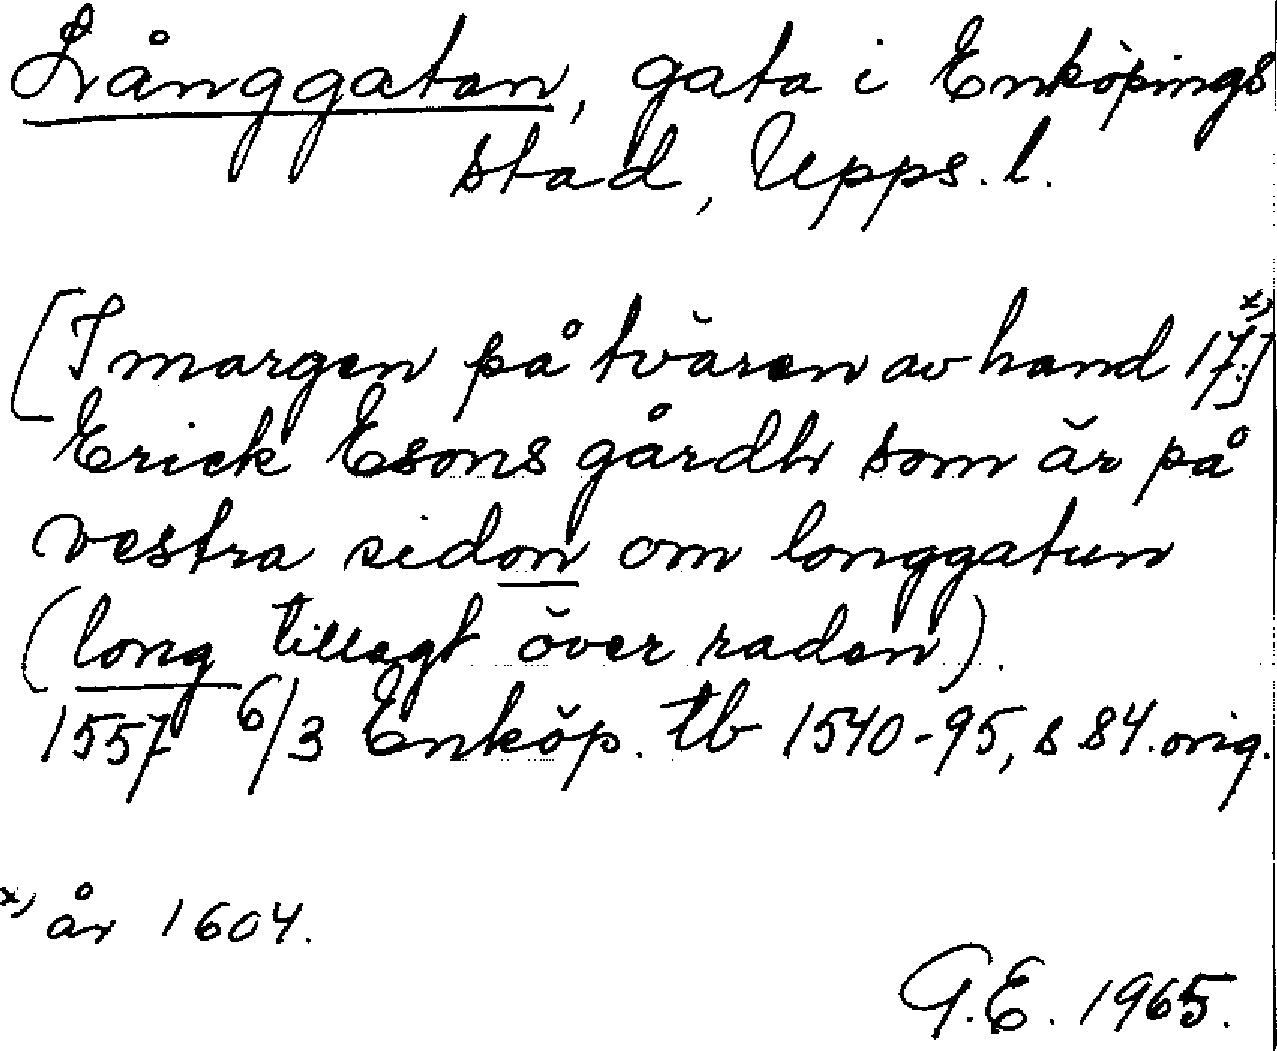 Långgatan, gata i Enköpings
stad, Upps. l.
[I margen på tvären av hand 17:] x)
Erick Esons gårdh som är på
vestra sidon om longgatun
(long tillagt över raden).
1557 6/3 Enköp. tb 1540-95, s 84. orig.
x) år 1604.
G.E. 1965.